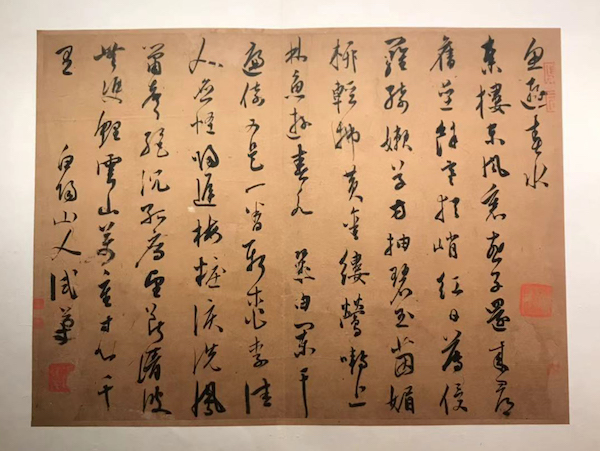 魚遊春水
東樓東風裏燕子還來尋
舊壘餘寒猶峭紅日薄侵
羅綺嫩草方抽碧玉茵媚
柳輕拂黃金縷鶯囀上
林魚遊春水 幾曲闌干
遍倚又是一番新桃李佳
人應怪歸遲梅妝淚洗鳳
簫聲絕沉孤雁望斷波
無雙鯉雲山萬重寸心千
里 白陽山人試筆